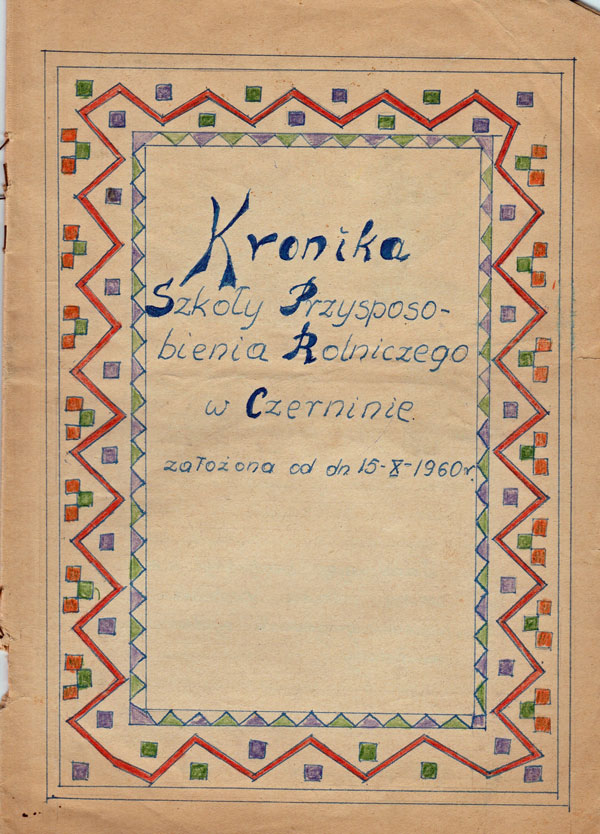 Kronika
Szkoły Przysposo-
bienia Rolniczego
w Czerninie.
założona od dn 15-X-1960r.